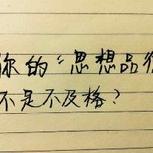 你的“思想品德
不是不及格？